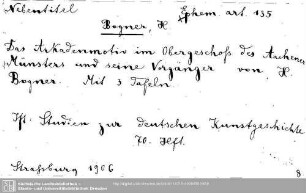 Nebentitel
Ephem. art. 135
Bogner, H.
Das Arkadenmotiv im Obergeschoß des Aachener
Münsters und seine Vorgänger von H.
Bogner. Mit 3 Tafeln.
Ist. Studien zur deutschen Kunstgeschichte
70. Heft.
Strassburg 1906
8